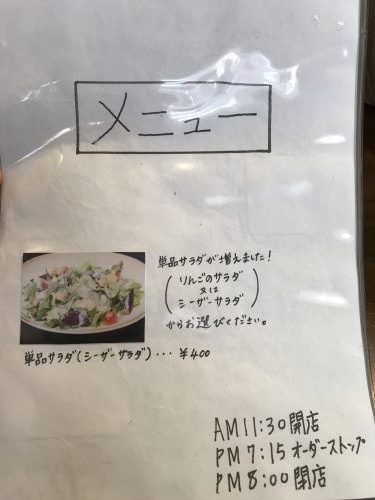 メニュー
単品サラダが増えました!
(りんごのサラダ
又は
シーザーサラダ)
からお選びください。
単品サラダ(シーザーサラダ)・・・¥400
AM11:30開店
PM7:15オーダーストップ
PM8:00閉店